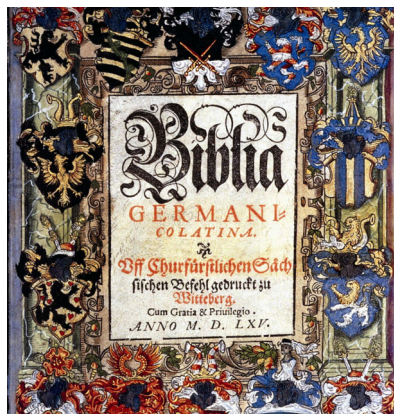 Biblia
GERMANI⸗
COLATINA.
Vff Churfürstlichen Säch
sischen Befehl gedruckt zu
Witteberg.
Cum Gratia & Priuilegio.
ANNO M. D. LXV.